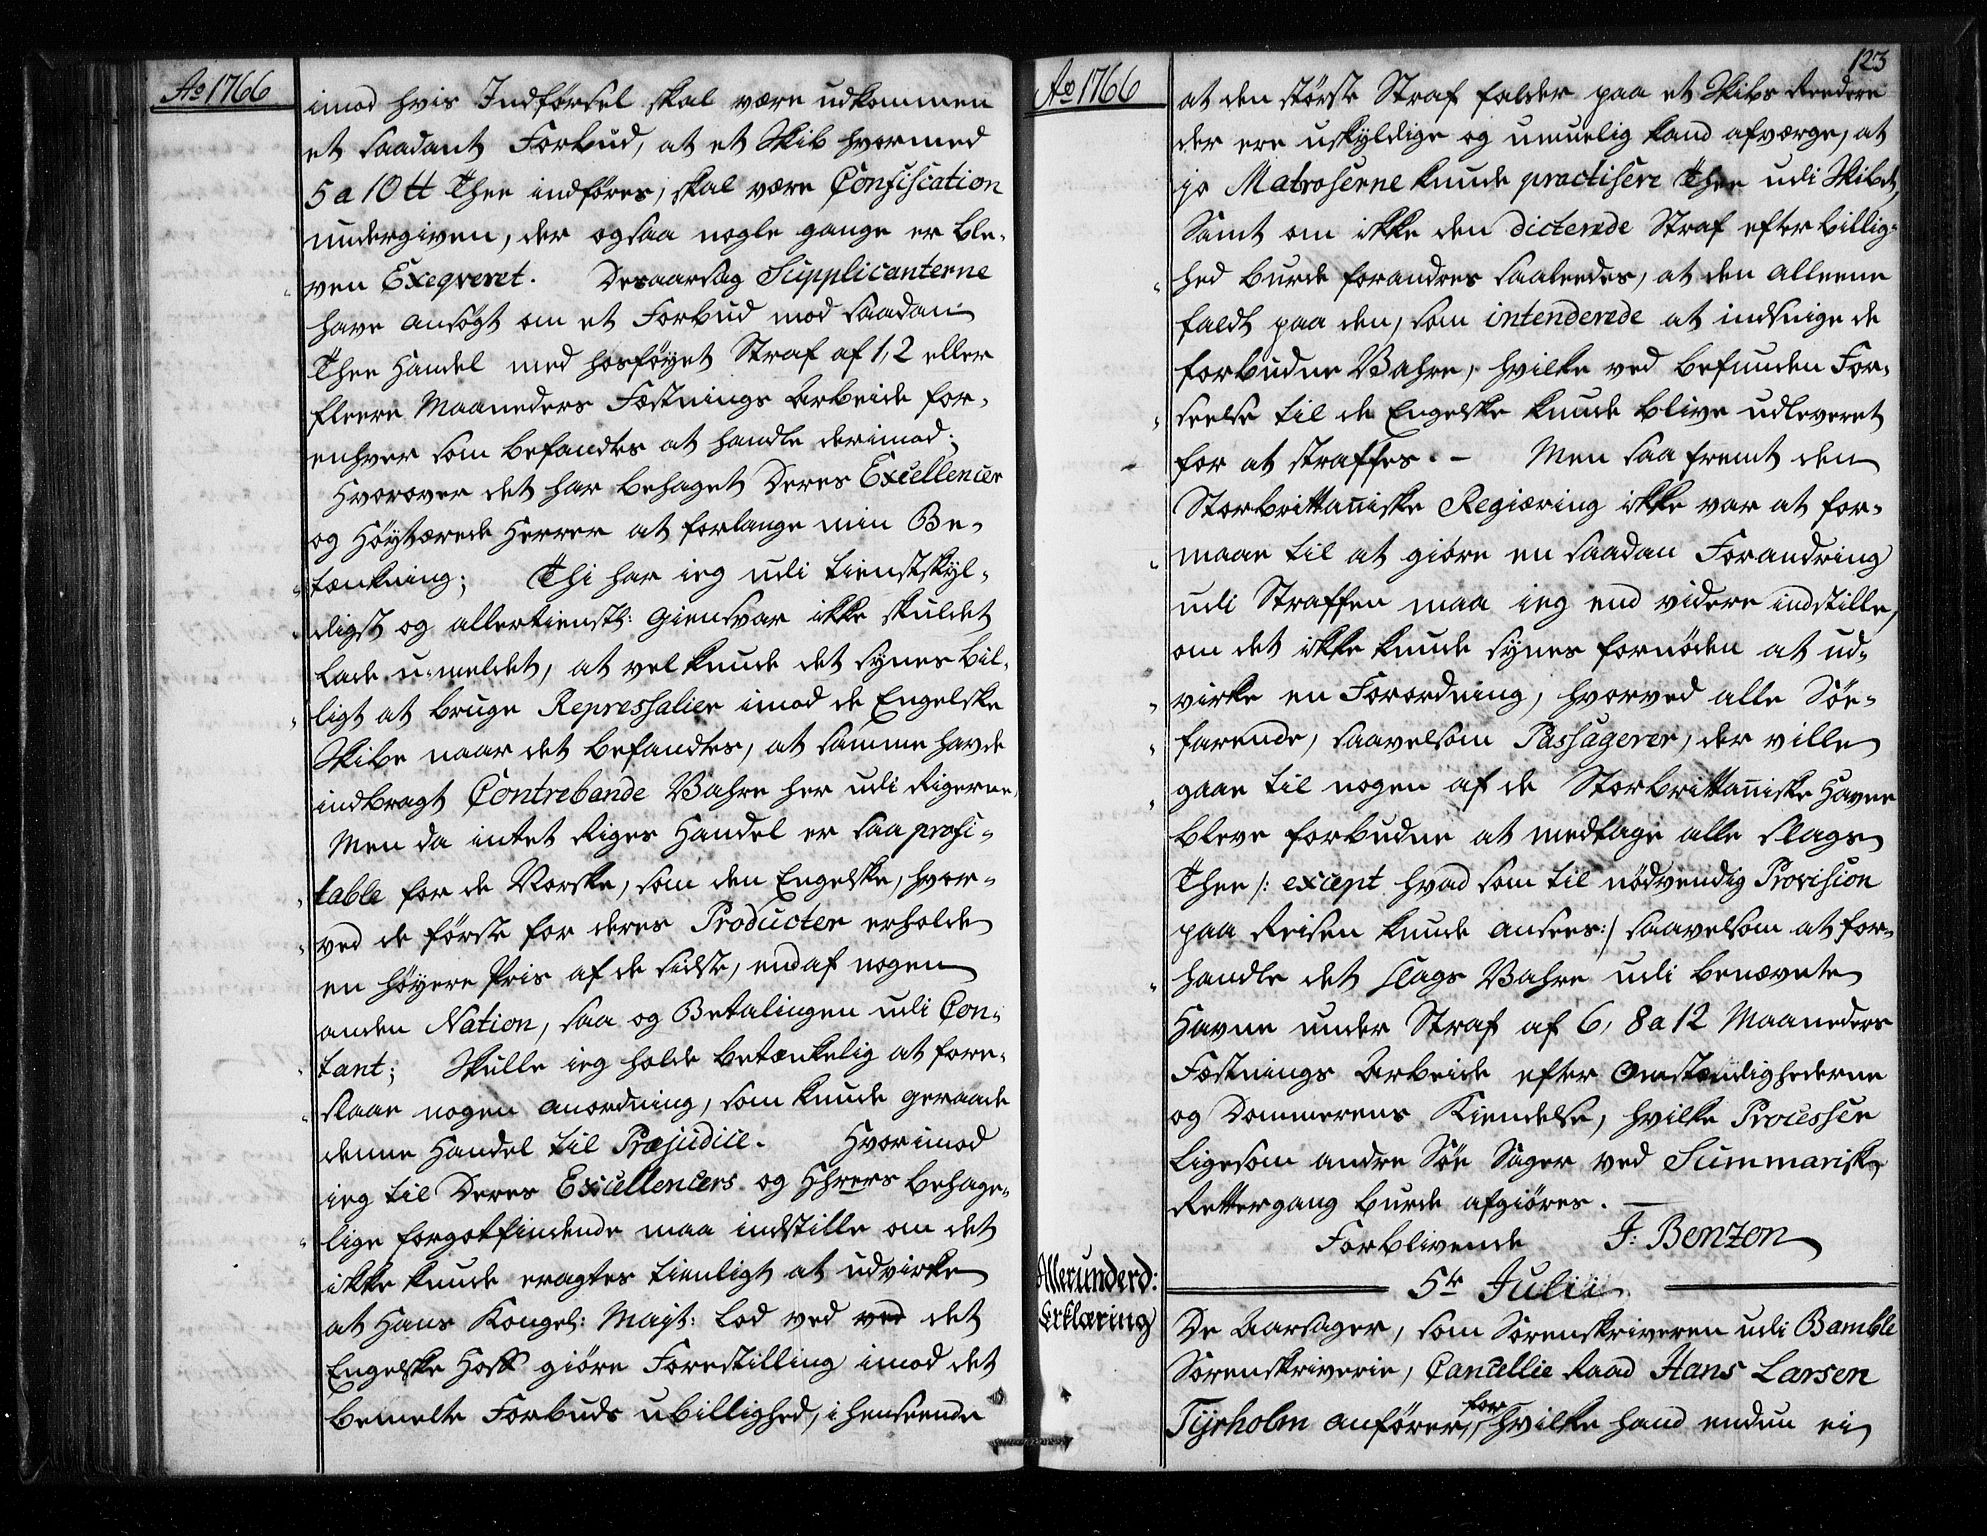 Ao 1766
imod hvis Indførsel skal være udkommen
et saadant Forbud, at et Skib hvormed
5 a 10 tt Thee indføres, skal være Confiscation
undergiven, der ogsaa nogle gange er ble-
ven Exeqveret. Desaarsag Supplicanterne
have ansøgt om et Forbud mod saadan
Thee Handel med hosføyet Straf af 1, 2 eller
fleere Maaneders Fæstnings Arbeide for
enhver som befandtes at handle derimod;
Hvorover det har behaget Deres Excellencer
og Høytærede Herrer at forlange min Be-
tænkning; Thi har ieg udi tienstskyl-
digst og allertienstl: Giensvar ikke skuldet
lade u-meldet, at vel kunde det synes bil-
ligt at bruge Repressalier imod de Engelske
Skibe naar det befandtes, at samme havde
indbragt Contrebande Vahre her udi Rigerne,
Men da intet Riges Handel er saa profi-
table for de Norske, som den Engelske, hvor-
ved de første for deres Producter erholde
en høyere Pris af de sidste, end af nogen
anden Nation, saa og Betalingen udi Con-
tant; Skulle ieg holde betænkelig at fore-
slaae nogen anordning, som kunde geraade
denne Handel til Præjudice. Hvorimod
ieg til Deres Excellencers og Hhrers behage-
lige forgotfindende maa indstille om det
ikke kunde eragtes tienligt at udvirke
at Hans Kongel: Mayt: lod ved ved det
Engelske Hoff giøre Forestilling imod det
bemelte Forbuds ubillighed, i henseende
Ao 1766
123
at den største Straf falder paa et Skibs Reedere
der ere uskyldige og umuelig kand afværge, at
jo Matroserne kunde practisere Thee udi Skibet,
Samt om ikke den dicterede Straf efter billig-
hed burde forandres saaleedes, at den alleene
faldt paa den, som intenderede at indsnige de
forbudne Vahre, hvilke ved befunden For-
seelse til de Engelske kunde blive udleveret
for at straffes. - Men saa fremt den
Storbrittanniske Regiæring ikke var at for-
maae til at giøre en saadan Forandring
udi Straffen maa ieg end videre indstille,
om det ikke kunde synes fornøden at ud-
virke en Forordning, hvorved alle Søe-
farende, saavelsom Passagerer, der ville
gaae til nogen af de Storbrittanniske Havne
bleve forbudne at medtage alle slags
Thee /: except hvad som til nødvendig Provision
paa Reisen kunde ansees :/ saavelsom at for-
handle det slags Vahre udi benævnte
Havne under Straf af 6, 8 a 12 Maaneders
Fæstnings Arbeide efter Omstændighederne
og Dommerens Kiendelse, hvilke Processer
ligesom andre Søe Sager ved Summarisk
Rettergang burde afgiøres.
Forblivende J: Benzon
5te Julii
Allerunderd:
Erklæring
De Aarsager, som Sorenskriveren udi Bamble
Sorenskriverie, Cancellie Raad Hans Larsen
Tyrholm anfører, for hvilke hand endnu ei